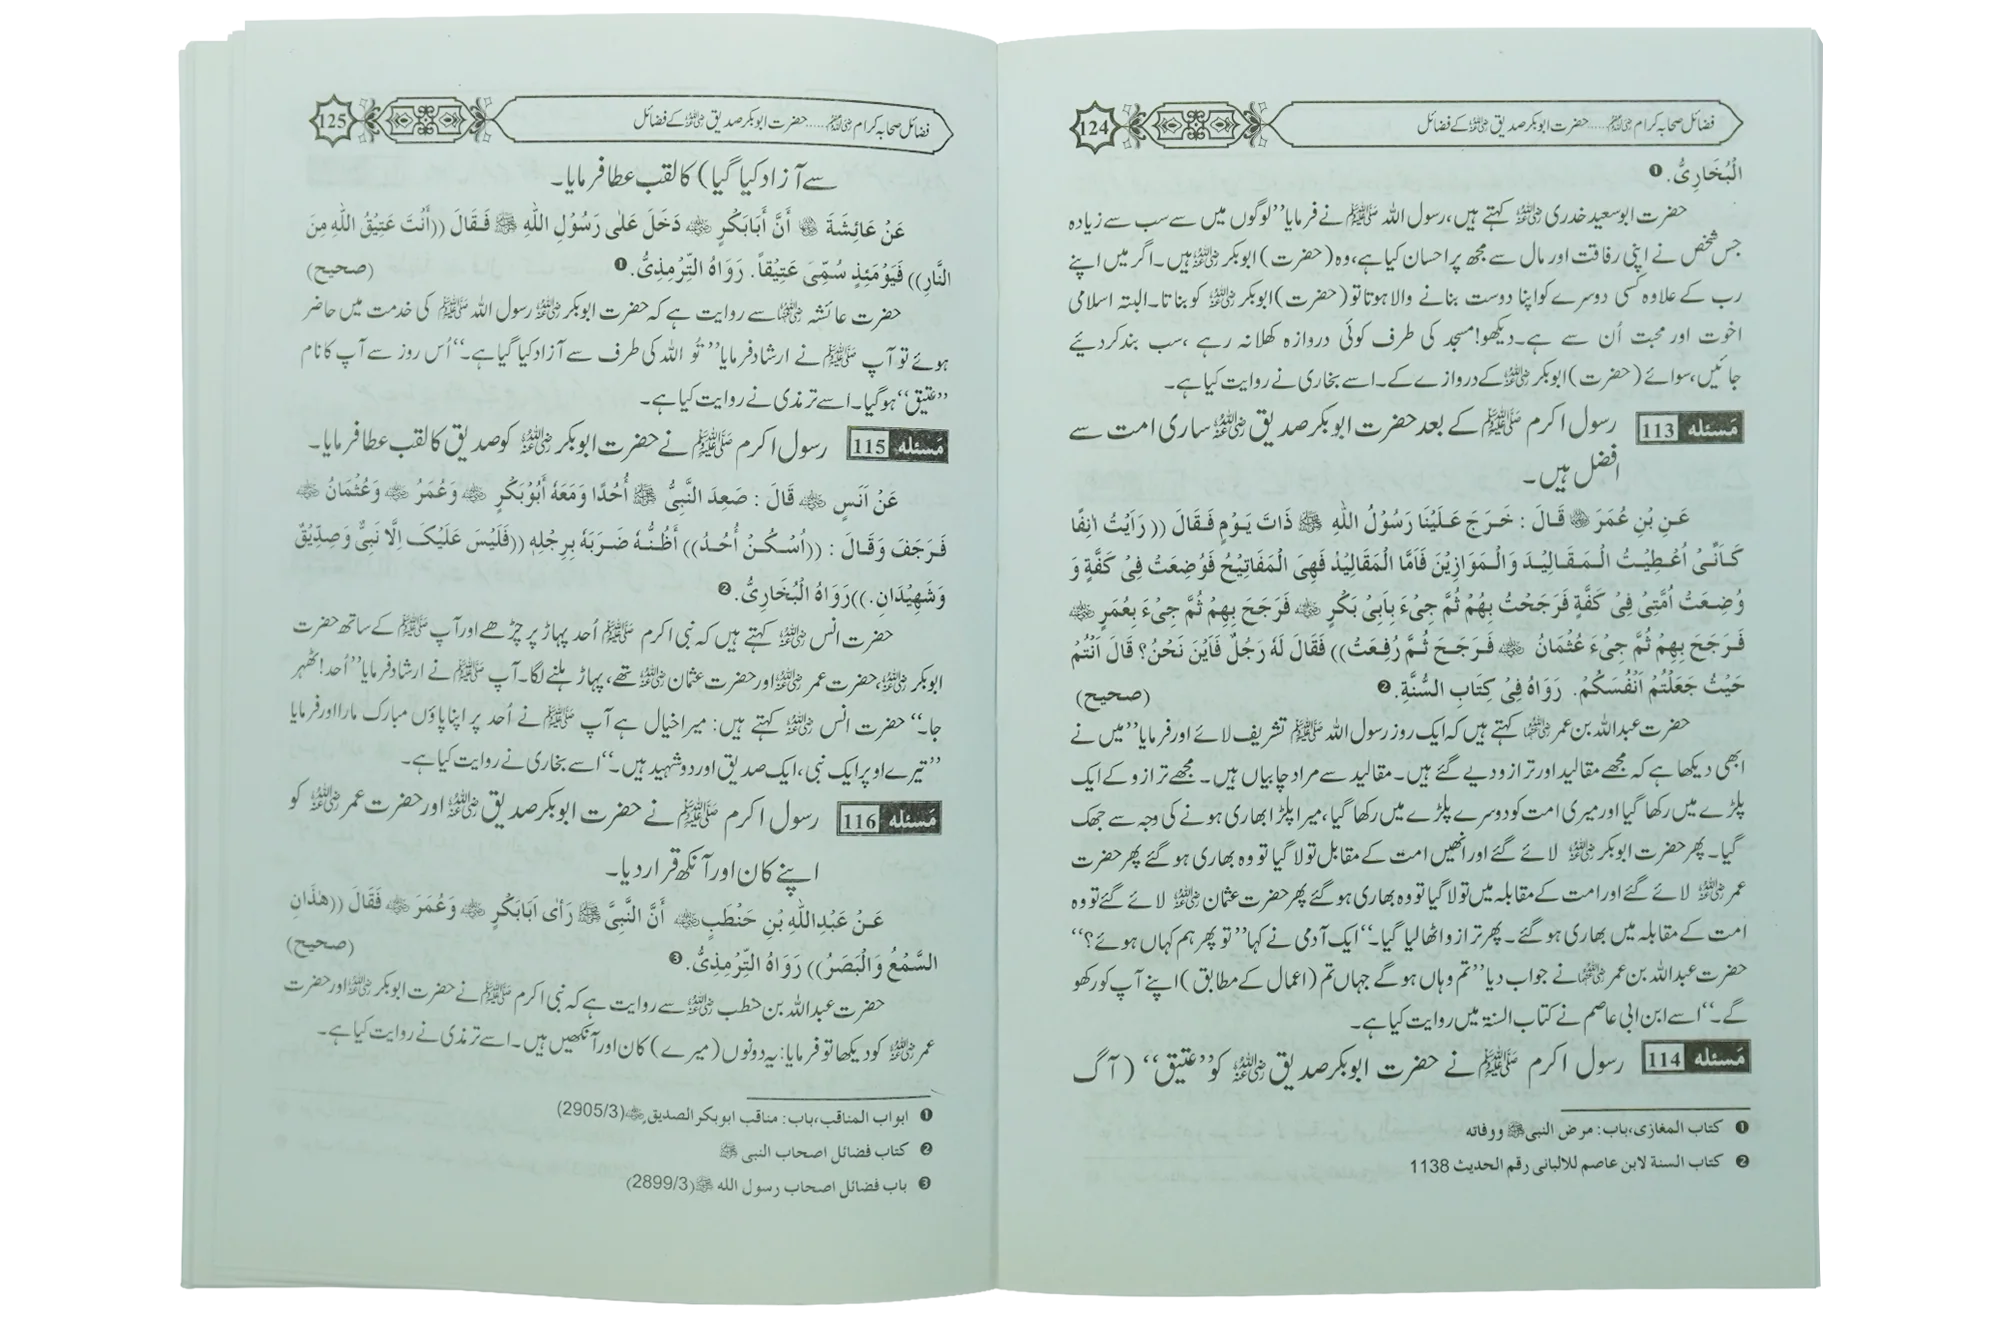 فضائل صحابہ کرام رضی اللہ عنہم.....حضرت ابوبکر صدیق رضی اللہ عنہ کے فضائل
124
الْبُخَارِىُّ. ❶
حضرت ابوسعید خدری رضی اللہ عنہ کہتے ہیں، رسول اللہ ﷺ نے فرمایا ’’لوگوں میں سے سب سے زیادہ
جس شخص نے اپنی رفاقت اور مال سے مجھ پر احسان کیا ہے، وہ (حضرت) ابوبکر رضی اللہ عنہ ہیں۔ اگر میں اپنے
رب کے علاوہ کسی دوسرے کو اپنا دوست بنانے والا ہوتا تو (حضرت) ابوبکر رضی اللہ عنہ کو بناتا۔ البتہ اسلامی
اخوت اور محبت اُن سے ہے۔ دیکھو! مسجد کی طرف کوئی دروازہ کھلا نہ رہے، سب بند کردیئے
جائیں، سوائے (حضرت) ابوبکر رضی اللہ عنہ کے دروازے کے۔ اسے بخاری نے روایت کیا ہے۔
مَسئلہ 113 رسول اکرم ﷺ کے بعد حضرت ابوبکر صدیق رضی اللہ عنہ ساری امت سے
افضل ہیں۔
عَنِ بْنِ عُمَرَ رضی اللہ عنہ قَالَ : خَرَجَ عَلَيْنَا رَسُوْلُ اللّٰهِ ﷺ ذَاتَ يَوْمٍ فَقَالَ ((رَاَيْتُ اٰنِفًا
كَاَنِّىْ اُعْطِيْتُ الْمَقَالِيْدَ وَالْمَوَازِيْنَ فَاَمَّا الْمَقَالِيْدُ فَهِىَ الْمَفَاتِيْحُ فَوُضِعَتُ فِىْ كَفَّةٍ وَ
وُضِعَتُ اُمَّتِىْ فِىْ كَفَّةٍ فَرَجَحْتُ بِهُمْ ثُمَّ جِىْءَ بِاَبِىْ بَكْرٍ رضی اللہ عنہ فَرَجَحَ بِهِمْ ثُمَّ جِىْءَ بِعُمَرٍ رضی اللہ عنہ
فَرَجَحَ بِهِمْ ثُمَّ جِىْءَ عُثْمَانُ رضی اللہ عنہ فَرَجَحَ ثُمَّ رُفِعَتْ)) فَقَالَ لَهُ رَجُلٌ فَاَيْنَ نَحْنُ؟ قَالَ اَنْتُمْ
حَيْثُ جَعَلْتُمْ اَنْفُسَكُمْ. رَوَاهُ فِىْ كِتَابِ السُّنَّةِ. ❷ (صحيح)
حضرت عبداللہ بن عمر رضی اللہ عنہما کہتے ہیں کہ ایک روز رسول اللہ ﷺ تشریف لائے اور فرمایا ’’میں نے
ابھی دیکھا ہے کہ مجھے مقالید اور ترازو دیے گئے ہیں۔ مقالید سے مراد چابیاں ہیں۔ مجھے ترازو کے ایک
پلڑے میں رکھا گیا اور میری امت کو دوسرے پلڑے میں رکھا گیا، میرا پلڑا بھاری ہونے کی وجہ سے جھک
گیا۔ پھر حضرت ابوبکر رضی اللہ عنہ لائے گئے اور انھیں امت کے مقابل تولا گیا تو وہ بھاری ہو گئے پھر حضرت
عمر رضی اللہ عنہ لائے گئے اور امت کے مقابلہ میں تولا گیا تو وہ بھاری ہو گئے پھر حضرت عثمان رضی اللہ عنہ لائے گئے تو وہ
امت کے مقابلہ میں بھاری ہو گئے۔ پھر ترازو اٹھا لیا گیا۔‘‘ ایک آدمی نے کہا ’’تو پھر ہم کہاں ہوئے؟‘‘
حضرت عبداللہ بن عمر رضی اللہ عنہما نے جواب دیا ’’تم وہاں ہو گے جہاں تم (اعمال کے مطابق) اپنے آپ کو رکھو
گے۔‘‘ اسے ابن ابی عاصم نے کتاب السنۃ میں روایت کیا ہے۔
مَسئلہ 114 رسول اکرم ﷺ نے حضرت ابوبکر صدیق رضی اللہ عنہ کو ’’عتیق‘‘ (آگ
❶ کتاب المغازی، باب: مرض النبی ﷺ ووفاته
❷ کتاب السنة لابن عاصم للالبانی رقم الحدیث 1138
فضائل صحابہ کرام رضی اللہ عنہم.....حضرت ابوبکر صدیق رضی اللہ عنہ کے فضائل
125
سے آزاد کیا گیا) کا لقب عطا فرمایا۔
عَنْ عَائِشَةَ رضی اللہ عنہا أَنَّ أَبَابَكْرٍ رضی اللہ عنہ دَخَلَ عَلٰى رَسُوْلِ اللّٰهِ ﷺ فَقَالَ ((أَنْتَ عَتِيْقُ اللّٰهِ مِنَ
النَّارِ)) فَيَوْمَئِذٍ سُمِّىَ عَتِيْقاً. رَوَاهُ التِّرْمِذِىُّ. ❶ (صحيح)
حضرت عائشہ رضی اللہ عنہا سے روایت ہے کہ حضرت ابوبکر رضی اللہ عنہ رسول اللہ ﷺ کی خدمت میں حاضر
ہوئے تو آپ ﷺ نے ارشاد فرمایا ’’تُو اللہ کی طرف سے آزاد کیا گیا ہے۔‘‘ اُس روز سے آپ کا نام
’’عتیق‘‘ ہوگیا۔ اسے ترمذی نے روایت کیا ہے۔
مَسئلہ 115 رسول اکرم ﷺ نے حضرت ابوبکر رضی اللہ عنہ کو صدیق کا لقب عطا فرمایا۔
عَنْ اَنَسٍ رضی اللہ عنہ قَالَ : صَعِدَ النَّبِىُّ ﷺ أُحُدًا وَمَعَهٗ أَبُوْبَكْرٍ رضی اللہ عنہ وَعُمَرُ رضی اللہ عنہ وَعُثْمَانُ رضی اللہ عنہ
فَرَجَفَ وَقَالَ : ((اُسْكُنْ أُحُدُ)) أَظُنُّهٗ ضَرَبَهٗ بِرِجْلِهٖ ((فَلَيْسَ عَلَيْكَ اِلَّا نَبِىٌّ وَصِدِّيْقٌ
وَشَهِيْدَانِ.)) رَوَاهُ الْبُخَارِىُّ. ❷
حضرت انس رضی اللہ عنہ کہتے ہیں کہ نبی اکرم ﷺ اُحد پہاڑ پر چڑھے اور آپ ﷺ کے ساتھ حضرت
ابوبکر رضی اللہ عنہ، حضرت عمر رضی اللہ عنہ اور حضرت عثمان رضی اللہ عنہ تھے، پہاڑ ہلنے لگا۔ آپ ﷺ نے ارشاد فرمایا ’’اُحد! ٹھہر
جا۔‘‘ حضرت انس رضی اللہ عنہ کہتے ہیں: میرا خیال ہے آپ ﷺ نے اُحد پر اپنا پاؤں مبارک مارا اور فرمایا
’’تیرے اوپر ایک نبی، ایک صدیق اور دو شہید ہیں۔‘‘ اسے بخاری نے روایت کیا ہے۔
مَسئلہ 116 رسول اکرم ﷺ نے حضرت ابوبکر صدیق رضی اللہ عنہ اور حضرت عمر رضی اللہ عنہ کو
اپنے کان اور آنکھ قرار دیا۔
عَنْ عَبْدِاللّٰهِ بْنِ حَنْطَبٍ رضی اللہ عنہ أَنَّ النَّبِىَّ ﷺ رَأٰى اَبَابَكْرٍ رضی اللہ عنہ وَعُمَرَ رضی اللہ عنہ فَقَالَ ((هٰذَانِ
السَّمْعُ وَالْبَصَرُ)) رَوَاهُ التِّرْمِذِىُّ. ❸ (صحيح)
حضرت عبداللہ بن حنطب رضی اللہ عنہ سے روایت ہے کہ نبی اکرم ﷺ نے حضرت ابوبکر رضی اللہ عنہ اور حضرت
عمر رضی اللہ عنہ کو دیکھا تو فرمایا: یہ دونوں (میرے) کان اور آنکھیں ہیں۔ اسے ترمذی نے روایت کیا ہے۔
❶ ابواب المناقب، باب: مناقب ابوبکر الصدیق رضی اللہ عنہ (2905/3)
❷ کتاب فضائل اصحاب النبی ﷺ
❸ باب فضائل اصحاب رسول الله ﷺ (2899/3)